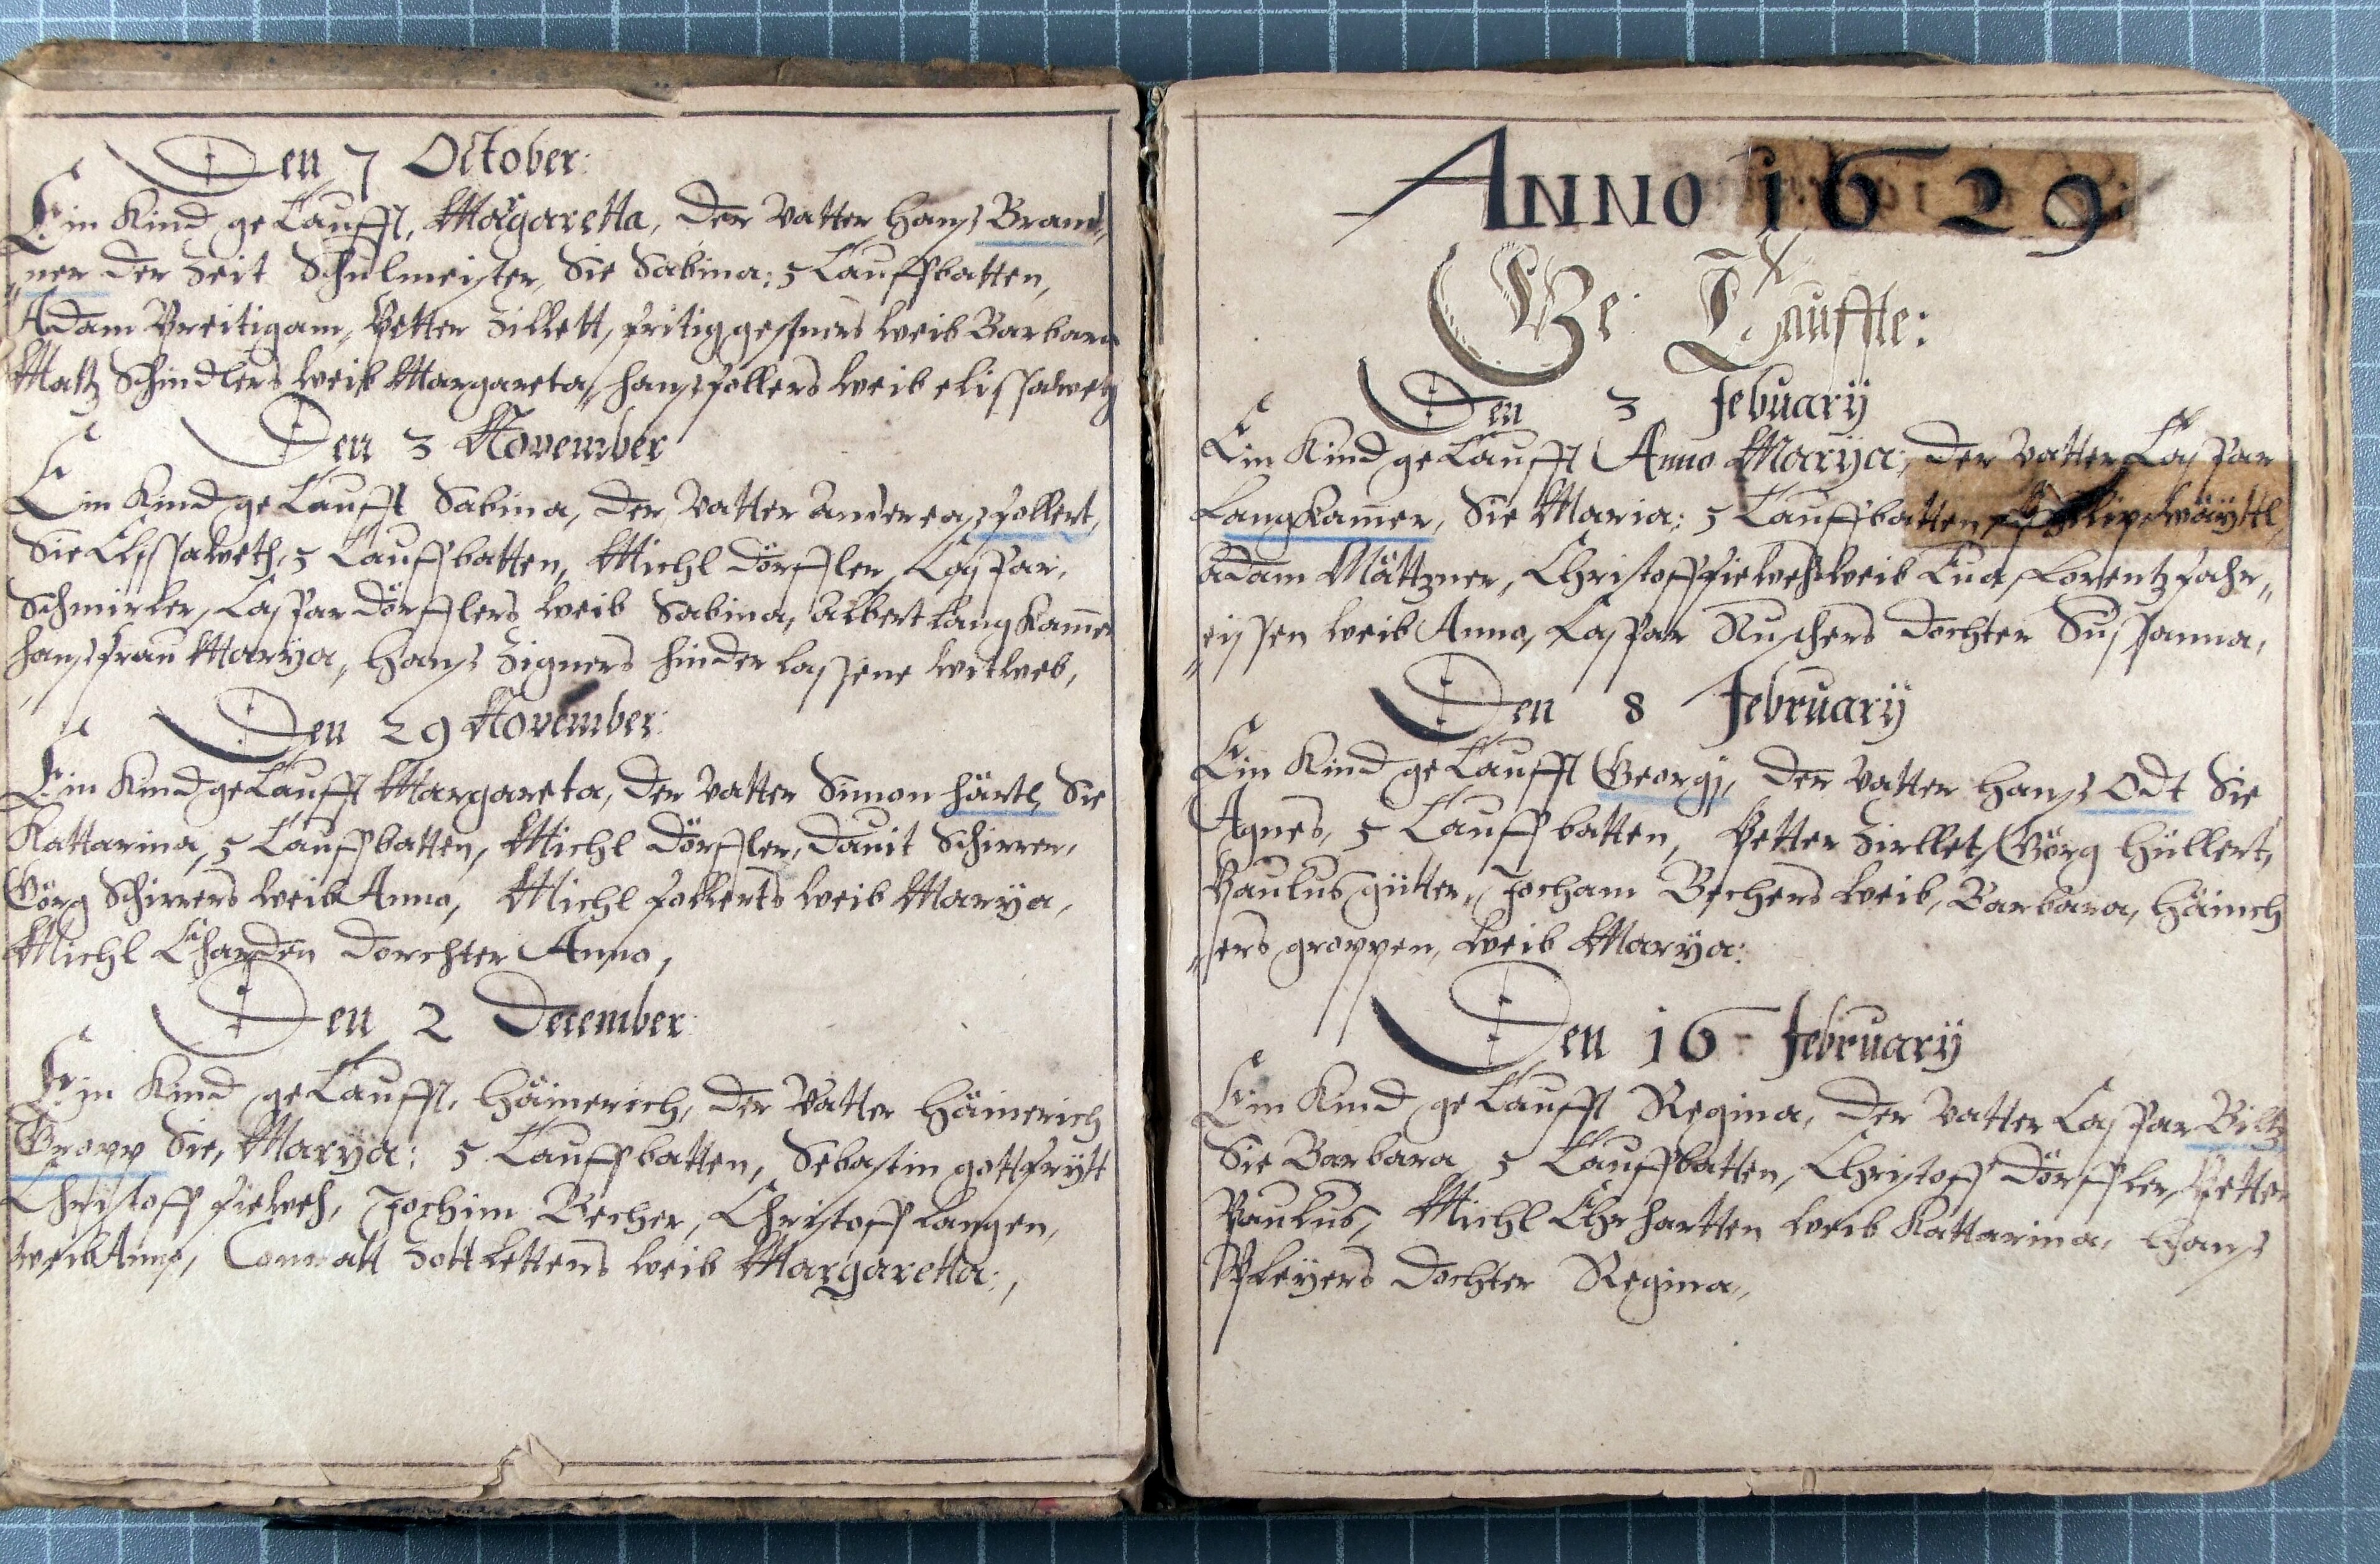 Den 7 October:
Ein Kind getaufft, Margaretta, der Vatter hanß Brand„
„ner der Zeit Schulmeister, Sie Sabina; 5 tauffbatten,
Adam Breitigam, Petter Zillett, fritz geßners weib Barbara
Matz Schindlers weib Margareta, hanß follers weib elissaweg
Den 3 November
Ein Kind getaufft Sabina, der Vatter andereaß follert,
Sie Elissaweth, 5 tauffbatten, Michl Dörffler, Caspar,
Schmirler, Caspar Dörfflers weib Sabina, albert langkamer
haußfrau Marÿa, hanß Zigners hinderlassene witweb,
Den 29 November:
Ein Kind getaufft Margareta, der Vatter Simon härtl, Sie
Kattarina, 5 tauffbatten, Michl Dörffler, Dauit Schirrer,
Görg Schirrers weib Anna, Michl follerts weib Marÿa,
Michl dorchter Anna,
Den 2 December
Ein Kind getaufft, Häinerich, der Vatter Häinerich
Gropp Sie, Marÿa: 5 tauffbatten, Sebastin gottfrÿtt
Christoff fieweh, Jochim Becher, Christoff langen,
weib Anna, Conratt Zottlettens weib Margaretta:,
ANNO 1629
Ge: Tauffte:
Den 3 febuarÿ
Ein Kind getaufft Anna Marÿa, der Vatter Caspar
langkamer, Sie Maria: 5 tauffbatten, wäÿttl,
adam Mättzner, Christoff fiewehs weib Eua, Lorentz fahr„
„eissen weib Anna, Caspar Ruschers dochter Sussanna,
Den 8 February
Ein Kind getaufft Georgj, der Vatter hanß Odt Sie
Agnes, 5 tauffbatten, Petter Zirllet, Görg hüllert,
Paulus gütter, Jocham Bechers weib, Barbara, häinch
„ers groppen, weib Marÿa:
Den 16 Februarÿ
Ein Kind getaufft Regina, der Vatter Caspar Biltz
Sie Barbara 5 tauffbatten, Christoff Dörffler, Petter
Paulus, Michl Ehrhartten weib Kattarina, hanß
Pleÿers dochter Regina„